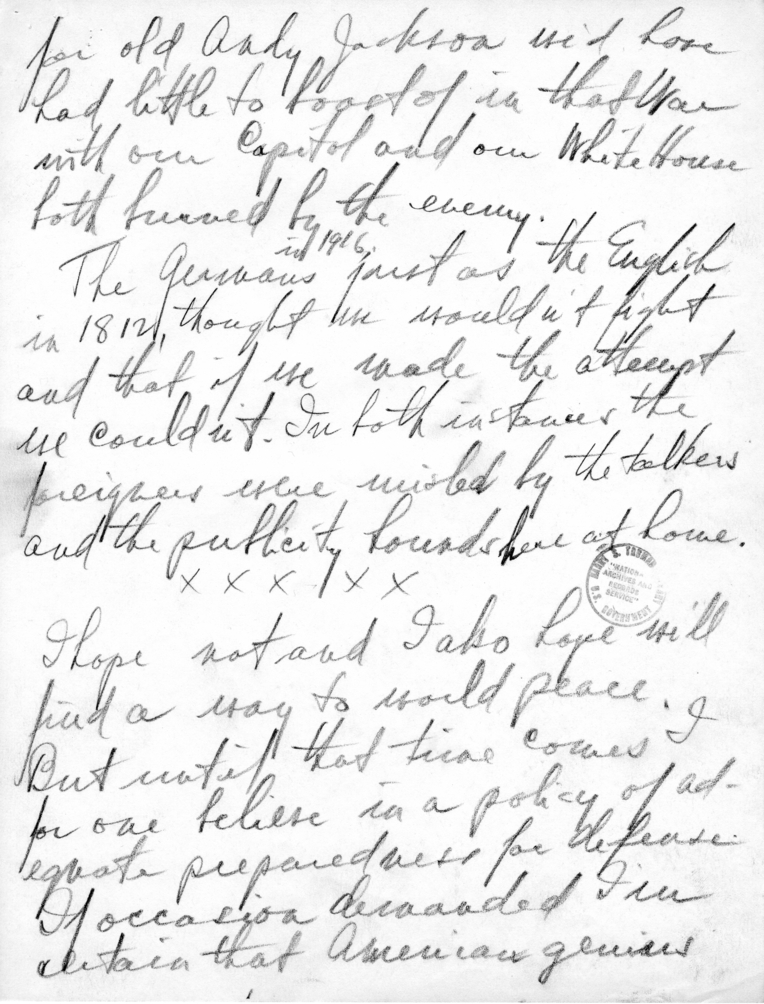 for old Andy Jackson we'd have
had little to boast of in that War
with our Capitol and our White House
both burned by the enemy.
in 1916,
The Germans just as the English
in 1812, thought we wouldn't fight
and that if we made the attempt
we couldn't. In both instances the
foreigners were misled by the talkers
and the publicity hounds here at home.
x x x x x
I hope not and I also hope will
find a way to world peace.
But until that time comes I
for one believe in a policy of ad-
equate preparedness for defense.
If occasion demanded I'm
certain that American genius
HARRY S. TRUMAN
"NATIONAL
ARCHIVES AND
RECORDS
SERVICE"
U.S. GOVERNMENT